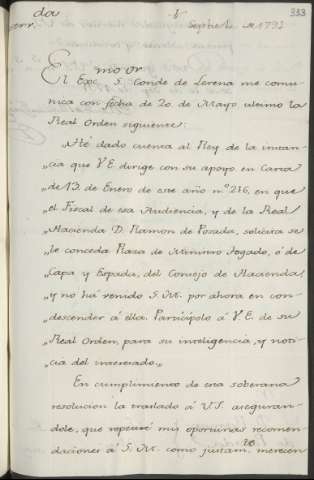 da
Septiel. de 1791
233
Exmo. Sor.
El Exc. S. Conde de Lerena me comu-
nica con fecha de 20. de Mayo ultimo la
Real Orden siguiente:
"Hé dado cuenta al Rey de la instan-
cia que V.E. dirige con su apoyo en Carta
"de 13. de Enero de este año nº 216, en que
"el Fiscal de esa Audiencia, y de la Real
"Hacienda D. Ramon de Posada, solicita se
"le conceda Plaza de Ministro Togado, ó de
"Capa y Espada, del Consejo de Hacienda,
"y no há venido S.M. por ahora en con-
"descender á ella. Participólo á V.E. de su
"Real Orden, para su inteligencia, y noti-
"cia del interesado."
En cumplimiento de esta soberana
resolucion la traslado á V.S. aseguran-
dole, que repetiré mis oportunas recomen-
daciones á S.M. como justam.te merecen